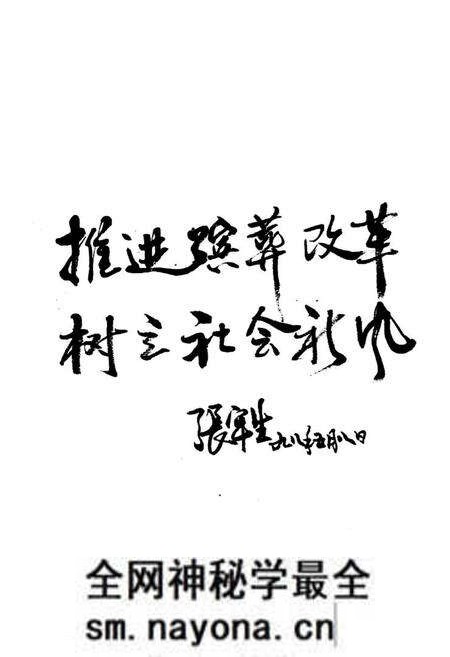 推进殡葬改革
树立社会新风
張宝生 九八年五月八日
全网神秘学最全
sm.nayona.cn